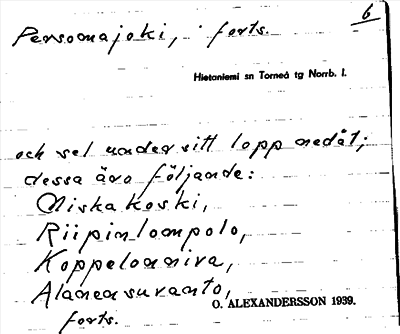 6
Persomajoki, forts.
Hietaniemi sn Torneå tg Norrb. l.
och sel under sitt lopp nedåt;
dessa äro följande:
Niskakoski,
Riipinlompolo,
Koppelonniva,
Alanensuvanto,
O. ALEXANDERSSON 1939.
forts.